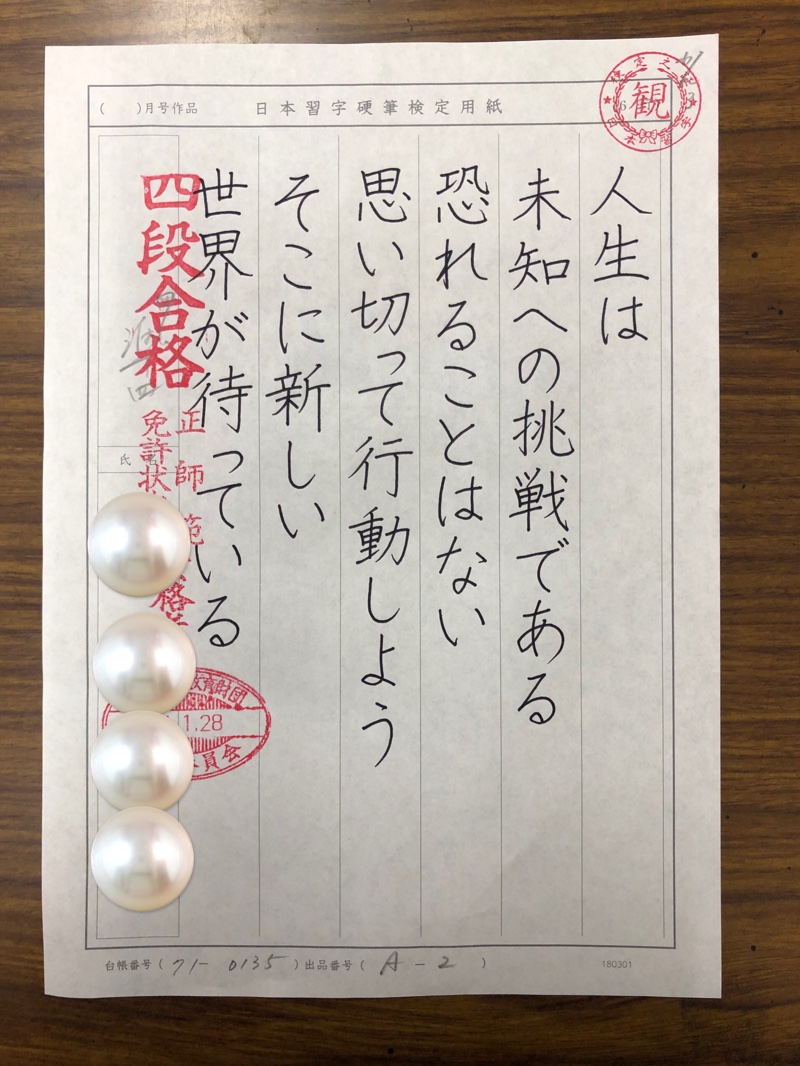 ( )月号作品 日本習字硬筆検定用紙
観
人生は
未知への挑戦である
恐れることはない
思い切って行動しよう
そこに新しい
世界が待っている
四段合格
正師範
免許状
格
氏
教育財団
1.28
員会
台帳番号(71-0135)出品番号(A-2)
180301